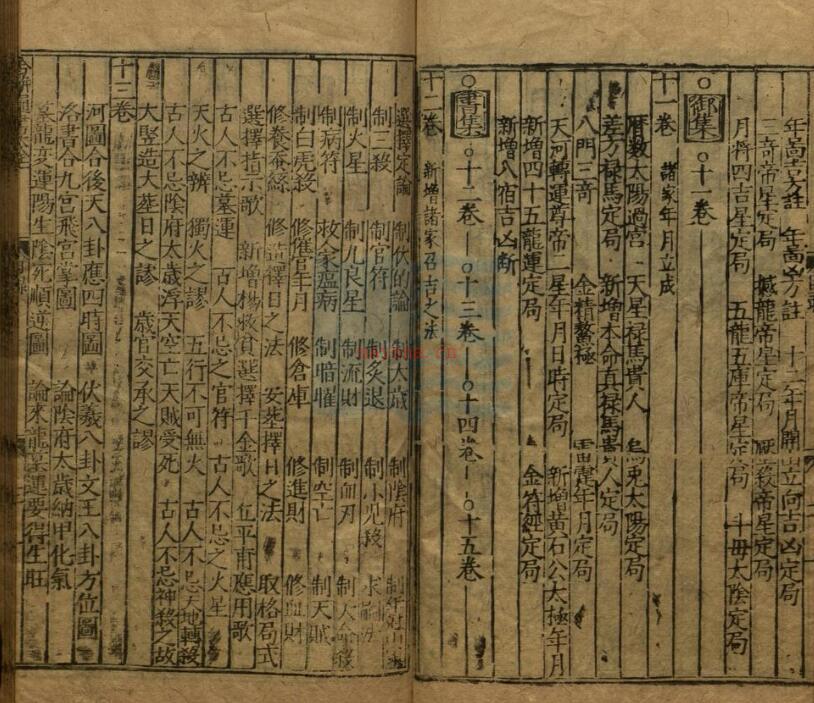 年萬吉方註 年萬凶方註 十二年月開山立向吉凶定局
三奇帝星定局 撼龍帝星定局 帝星定局
月將四吉星定局 五龍五庫帝星定局 斗母太陰定局
御集 十一卷
十一卷 諸家年月立成
曆数太陽過宮 天星禄馬貴人 烏兎太陽定局
差方禄馬定局 新增本命真禄馬貴人定局
八門三奇 金精鰲極 雷霆年月定局
天河轉運尊帝二星年月日時定局 新增黄石公太極年月
新增四十五龍運定局 金符經定局
新增八宿吉凶斷
書集 十二卷 十三卷 十四卷 十五卷
十二卷 新增諸家召吉之法
選擇定論 制伏的論 制太歲 制陰府
制三殺 制官符 制炙退 制小児殺
制火星 制九良星 制流財 制血刃
制病符 救家瘟病 制暗曜 制空亡 制天賊
制白虎殺 修催官年月 修倉庫 修進財 修血財
修養蚕絲 修造擇日之法 安塟擇日之法 取格局式
選擇指示歌 新增楊救貧選擇千金歌 應用歌
古人不忌墓運 古人不忌之官符 古人不忌之火星
天火之辨 獨火之謬 五行不可無火 古人不忌天地轉殺
古人不忌陰府太歲浮天空亡天賊受死 古人不忌神殺之故
大竪造大塟日之謬 歲官交承之謬
十三卷
河圖合後天八卦應四時圖 伏羲八卦文王八卦方位圖
洛書合九宮飛宮掌圖 論陰府太歲納甲化氣
墓龍变運陽生陰死順逆圖 論來龍墓運要得生旺